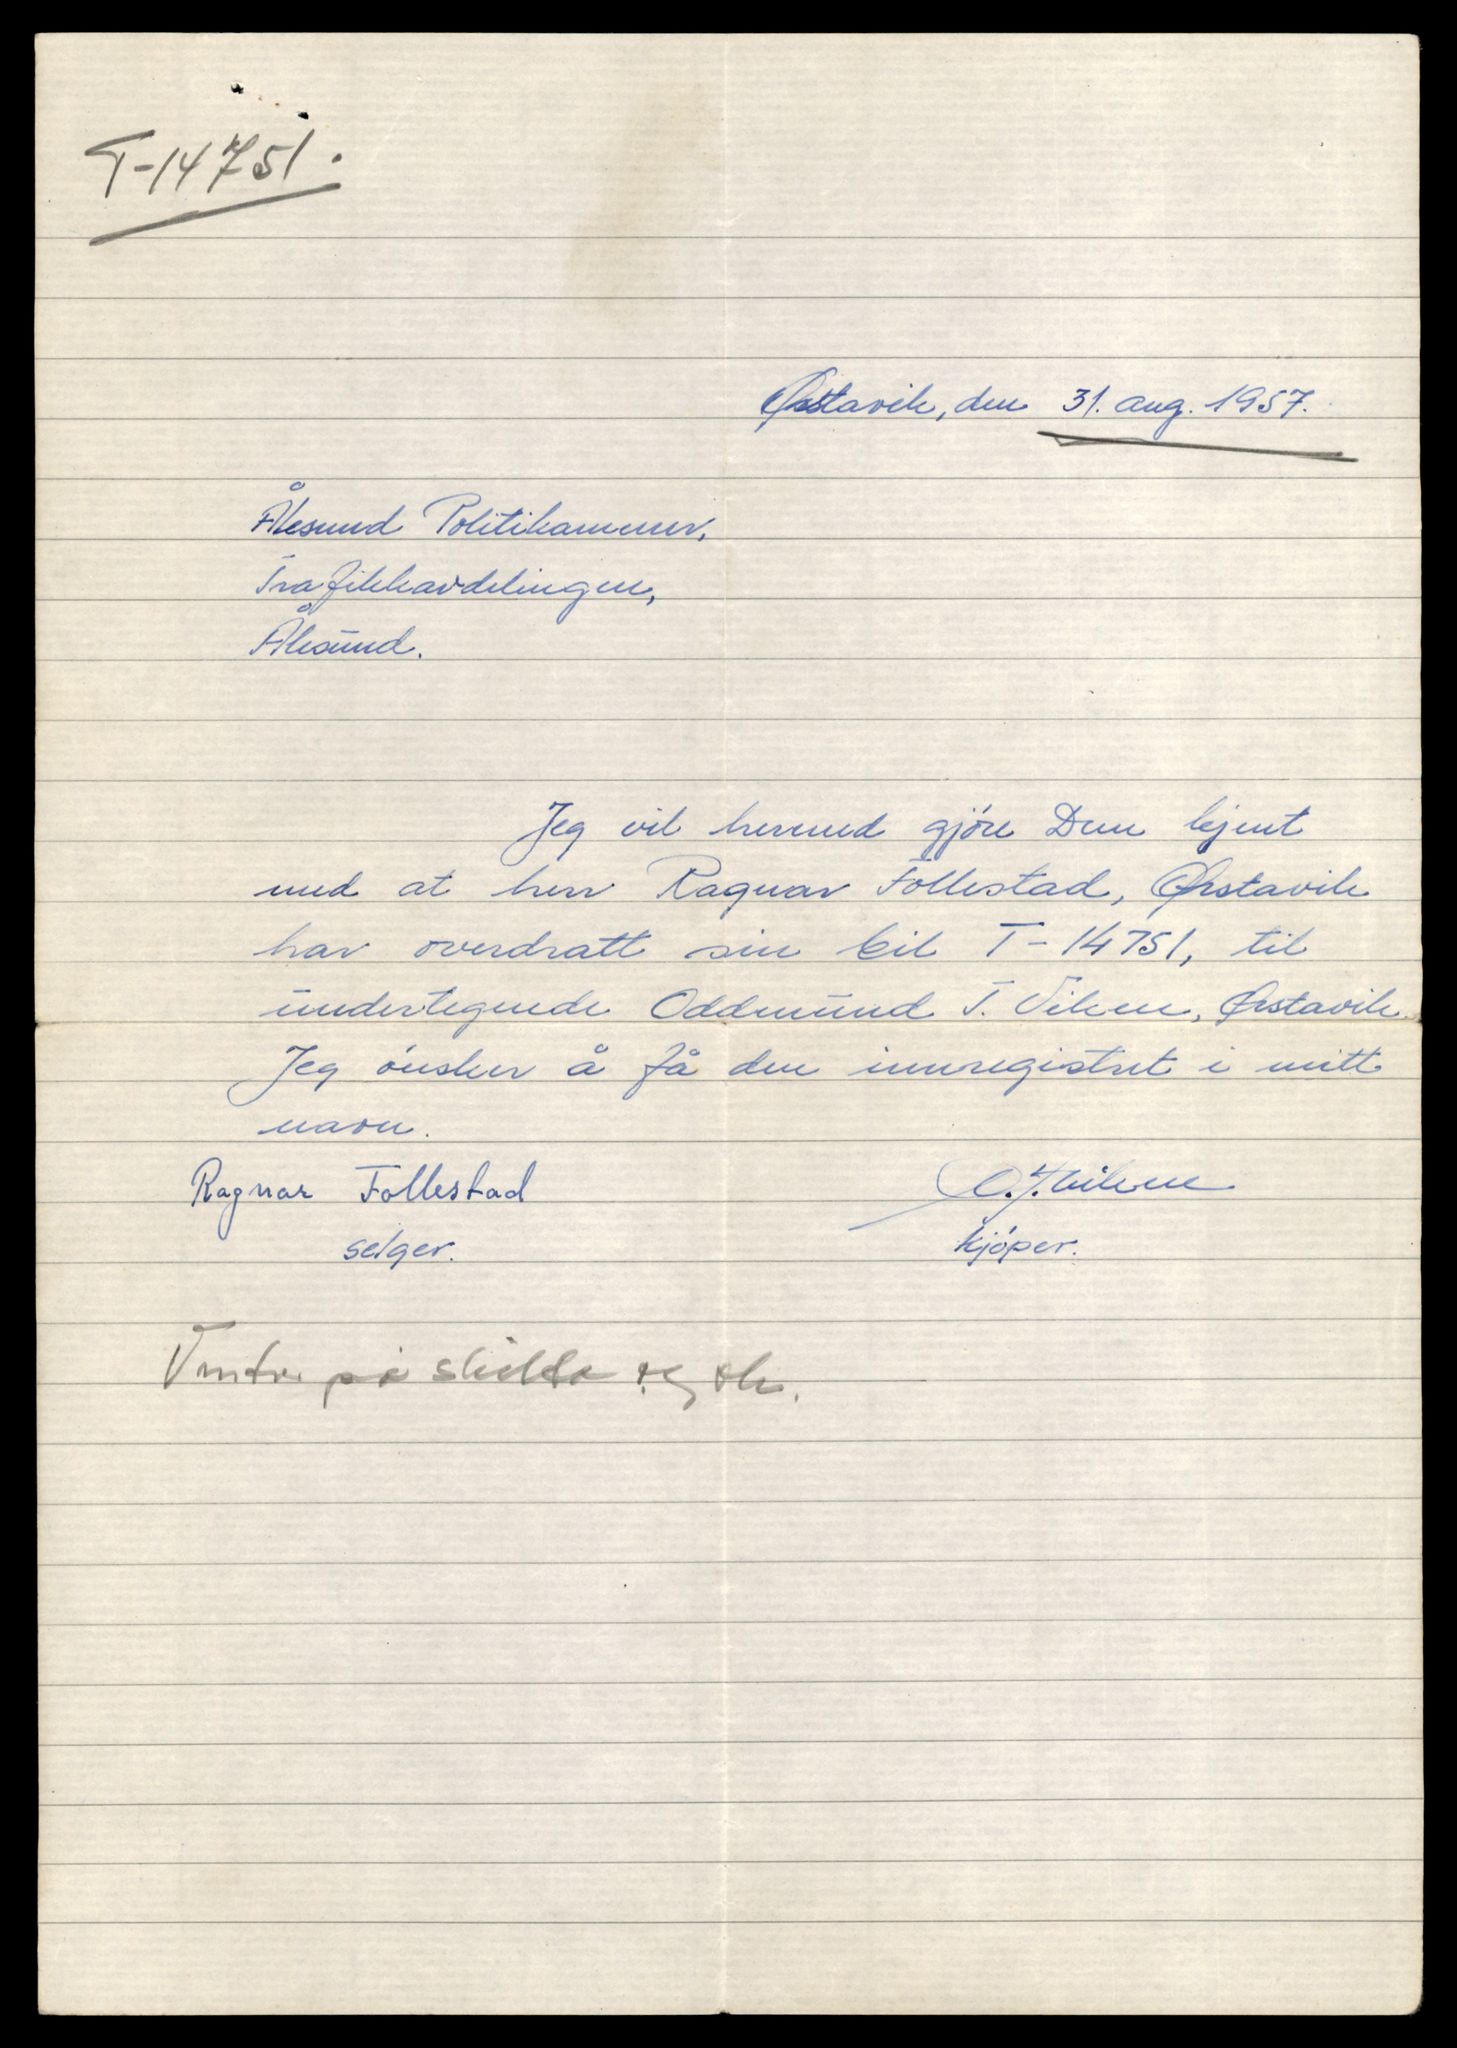 T-14751.
Ørstavik, den 31. aug. 1957.
Ålesund Politikammer,
Trafikkavdelingen,
Ålesund.
Jeg vil hermed gjöre Dem kjent
med at herr Ragnar Follestad, Ørstavik
har overdratt sin bil T-14751, til
undertegnede Oddmund T. Vikene, Ørstavik.
Jeg önsker å få den innregistret i mitt
navn.
Ragnar Follestad O. T. Vikene
selger. kjöper.
på skilta